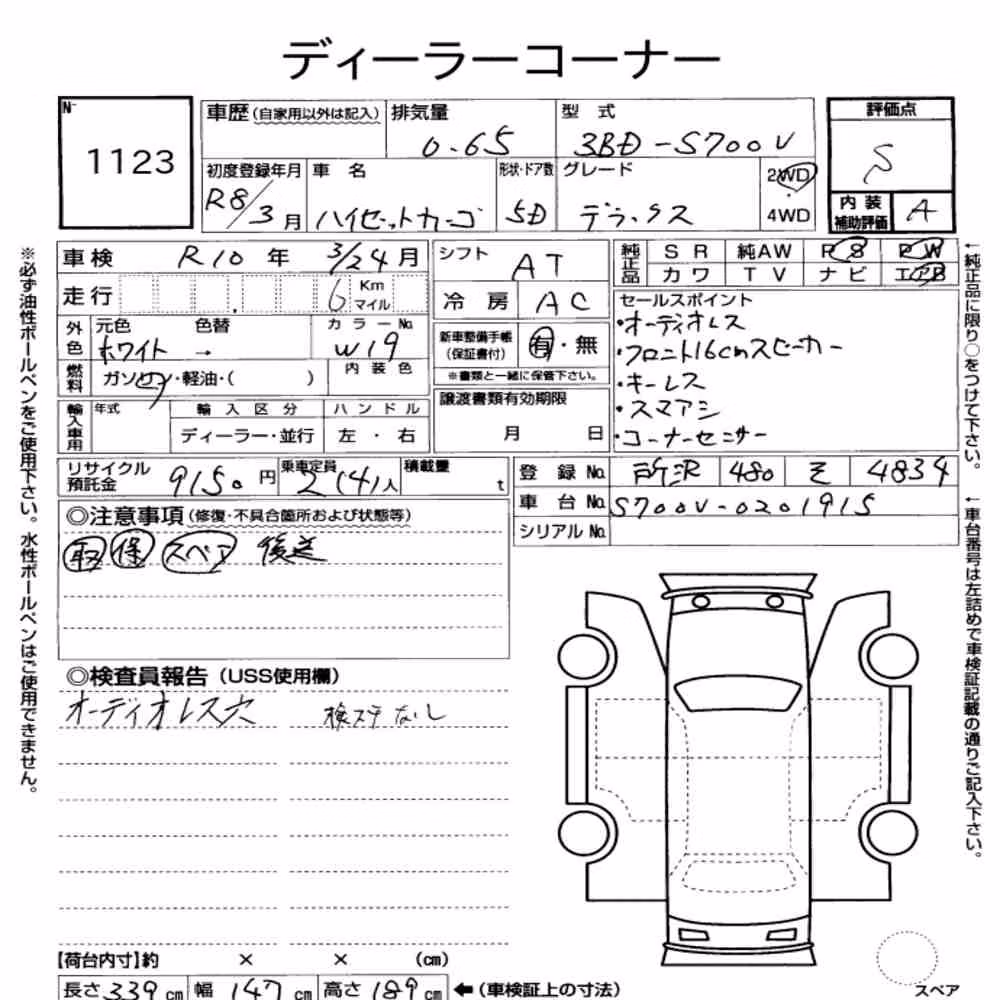 ディーラーコーナー
N- 1123
車歴 (自家用以外は記入) 排気量 0.65 型式 3BD-S700V
評価点 S
初度登録年月 R8/3月 車名 ハイゼットカーゴ 形状・ドア数 5D グレード デラックス 2WD・4WD
内装補助評価 A
車検 R10年 3/24月
走行 6 Km マイル
外色 元色 ホワイト → 色替 カラーNo. W19
燃料 ガソリン・軽油・( ) 内装色
輸入車用 年式 輸入区分 ディーラー・並行 ハンドル 左・右
シフト AT
冷房 AC
新車整備手帳 (保証書付) 有・無
※書類と一緒に保管下さい。
譲渡書類有効期限
月 日
純正品 SR 純AW PS PW
カワ TV ナビ エアB
セールスポイント
・オーディオレス
・フロント16cmスピーカー
・キーレス
・スマアシ
・コーナーセンサー
リサイクル預託金 9150円 乗車定員 2(4)人 積載量 t
登録No. 所沢 480 そ 4834
車台No. S700V-0201915
シリアルNo.
◎注意事項 (修復・不具合箇所および状態等)
取 保 スペア 後送
◎検査員報告 (USS使用欄)
オーディオレス穴 検ステなし
【荷台内寸】約 × × (cm)
長さ 339 cm 幅 147 cm 高さ 189 cm ←(車検証上の寸法)
スペア
※必ず油性ボールペンをご使用下さい。水性ボールペンはご使用できません。
←純正品に限り○をつけて下さい。
←車台番号は左詰めで車検証記載の通りご記入下さい。